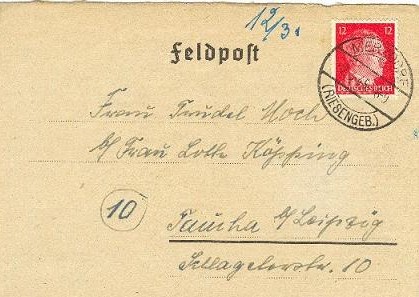 12/31
Feldpost
12 12
DEUTSCHES REICH
(RIESENGEB.)
Frau Trudel Koch
b/Frau Lotte Köpping
10
Taucha b/Leipzig
10